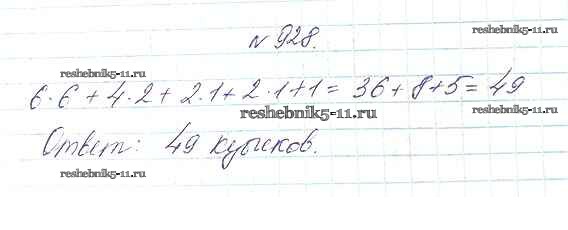 № 928.
reshebnik5-11.ru
reshebnik5-11.ru
6·6 + 4·2 + 2·1 + 2·1 + 1 = 36 + 8 + 5 = 49
reshebnik5-11.ru
reshebnik5-11.ru
Ответ: 49 кусков.
reshebnik5-11.ru
reshebnik5-11.ru